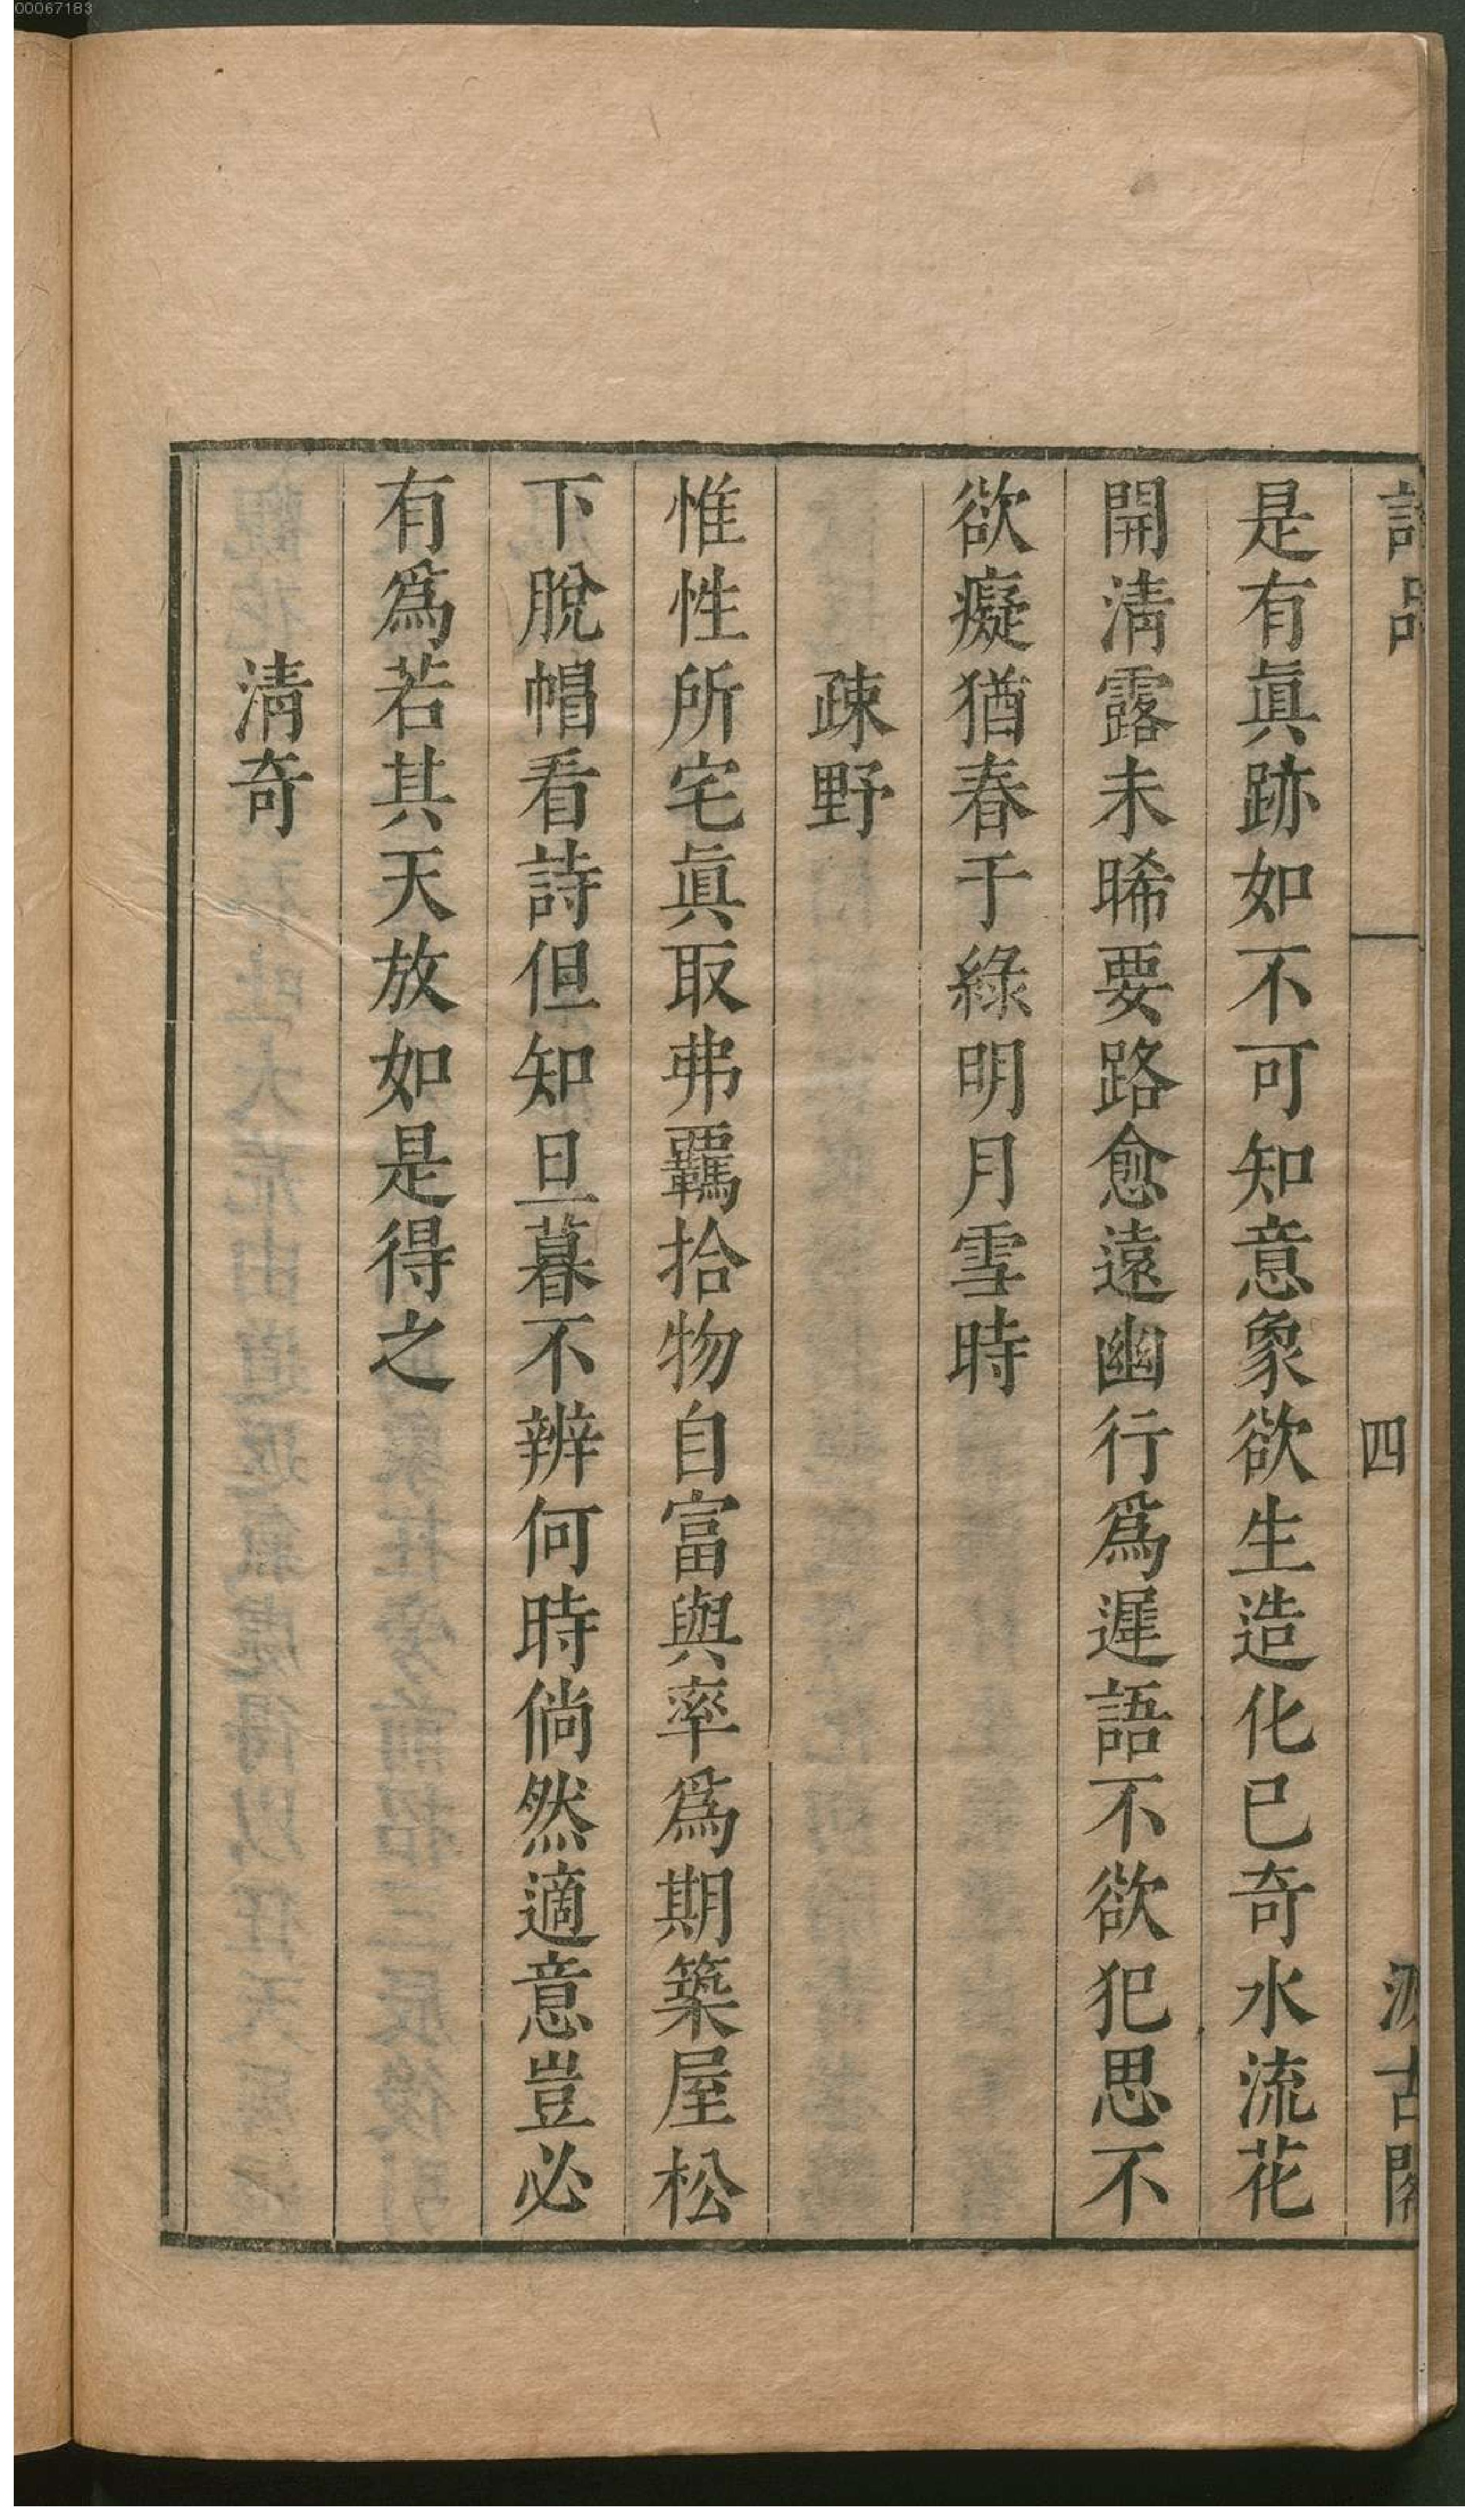 00067183
詩品 四 汲古閣
是有眞跡如不可知意象欲生造化已奇水流花
開淸露未晞要路愈遠幽行爲遲語不欲犯思不
欲癡猶春于綠明月雪時
疎野
惟性所宅眞取弗羈拾物自富與率爲期築屋松
下脫帽看詩但知旦暮不辨何時倘然適意豈必
有爲若其天放如是得之
淸奇